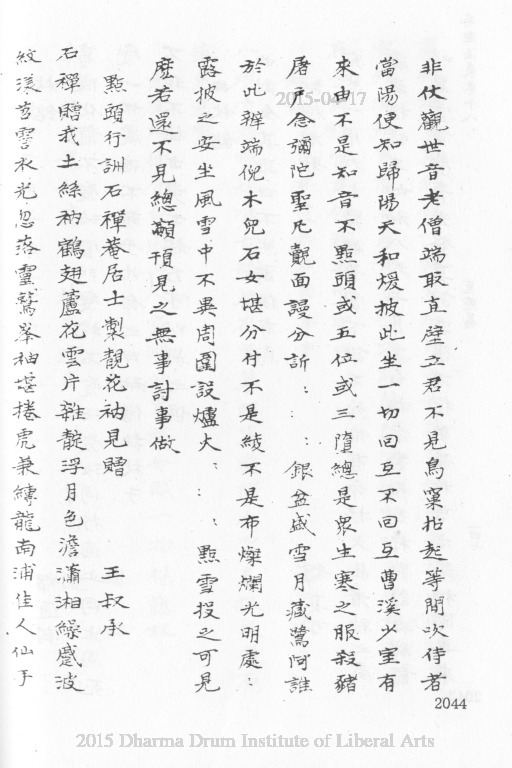 非仗觀世音老僧端取直壁立君不見鳥窠拈起等閒次侍者
當陽便知歸陽天和煖披此坐一切回互不回互曹溪少室有
來由不是知音不點頭或五位或三墮總是眾生寒之服殺豬
屠戶念彌陀聖凡覿面謾分訴：：：銀盆盛雪月藏鷺阿誰
於此辨端倪木兒石女堪分付不是綾不是布燦爛光明處：
露披之安坐風雪中不異周圍設爐火：：：點雪投之可見
麼若還不見總顢頇見之無事討事做
點頭行訓石禪菴居士製靚花衲見贈　王叔承
石禪贈我土絲衲鶴翅蘆花雲片雜靛浮月色澹瀟湘繰蹙波
紋漾苕霅水光忽落靈鷲峯袖堪捲虎兼縛龍南浦佳人仙子
2015-04-17
2044
2015 Dharma Drum Institute of Liberal Arts